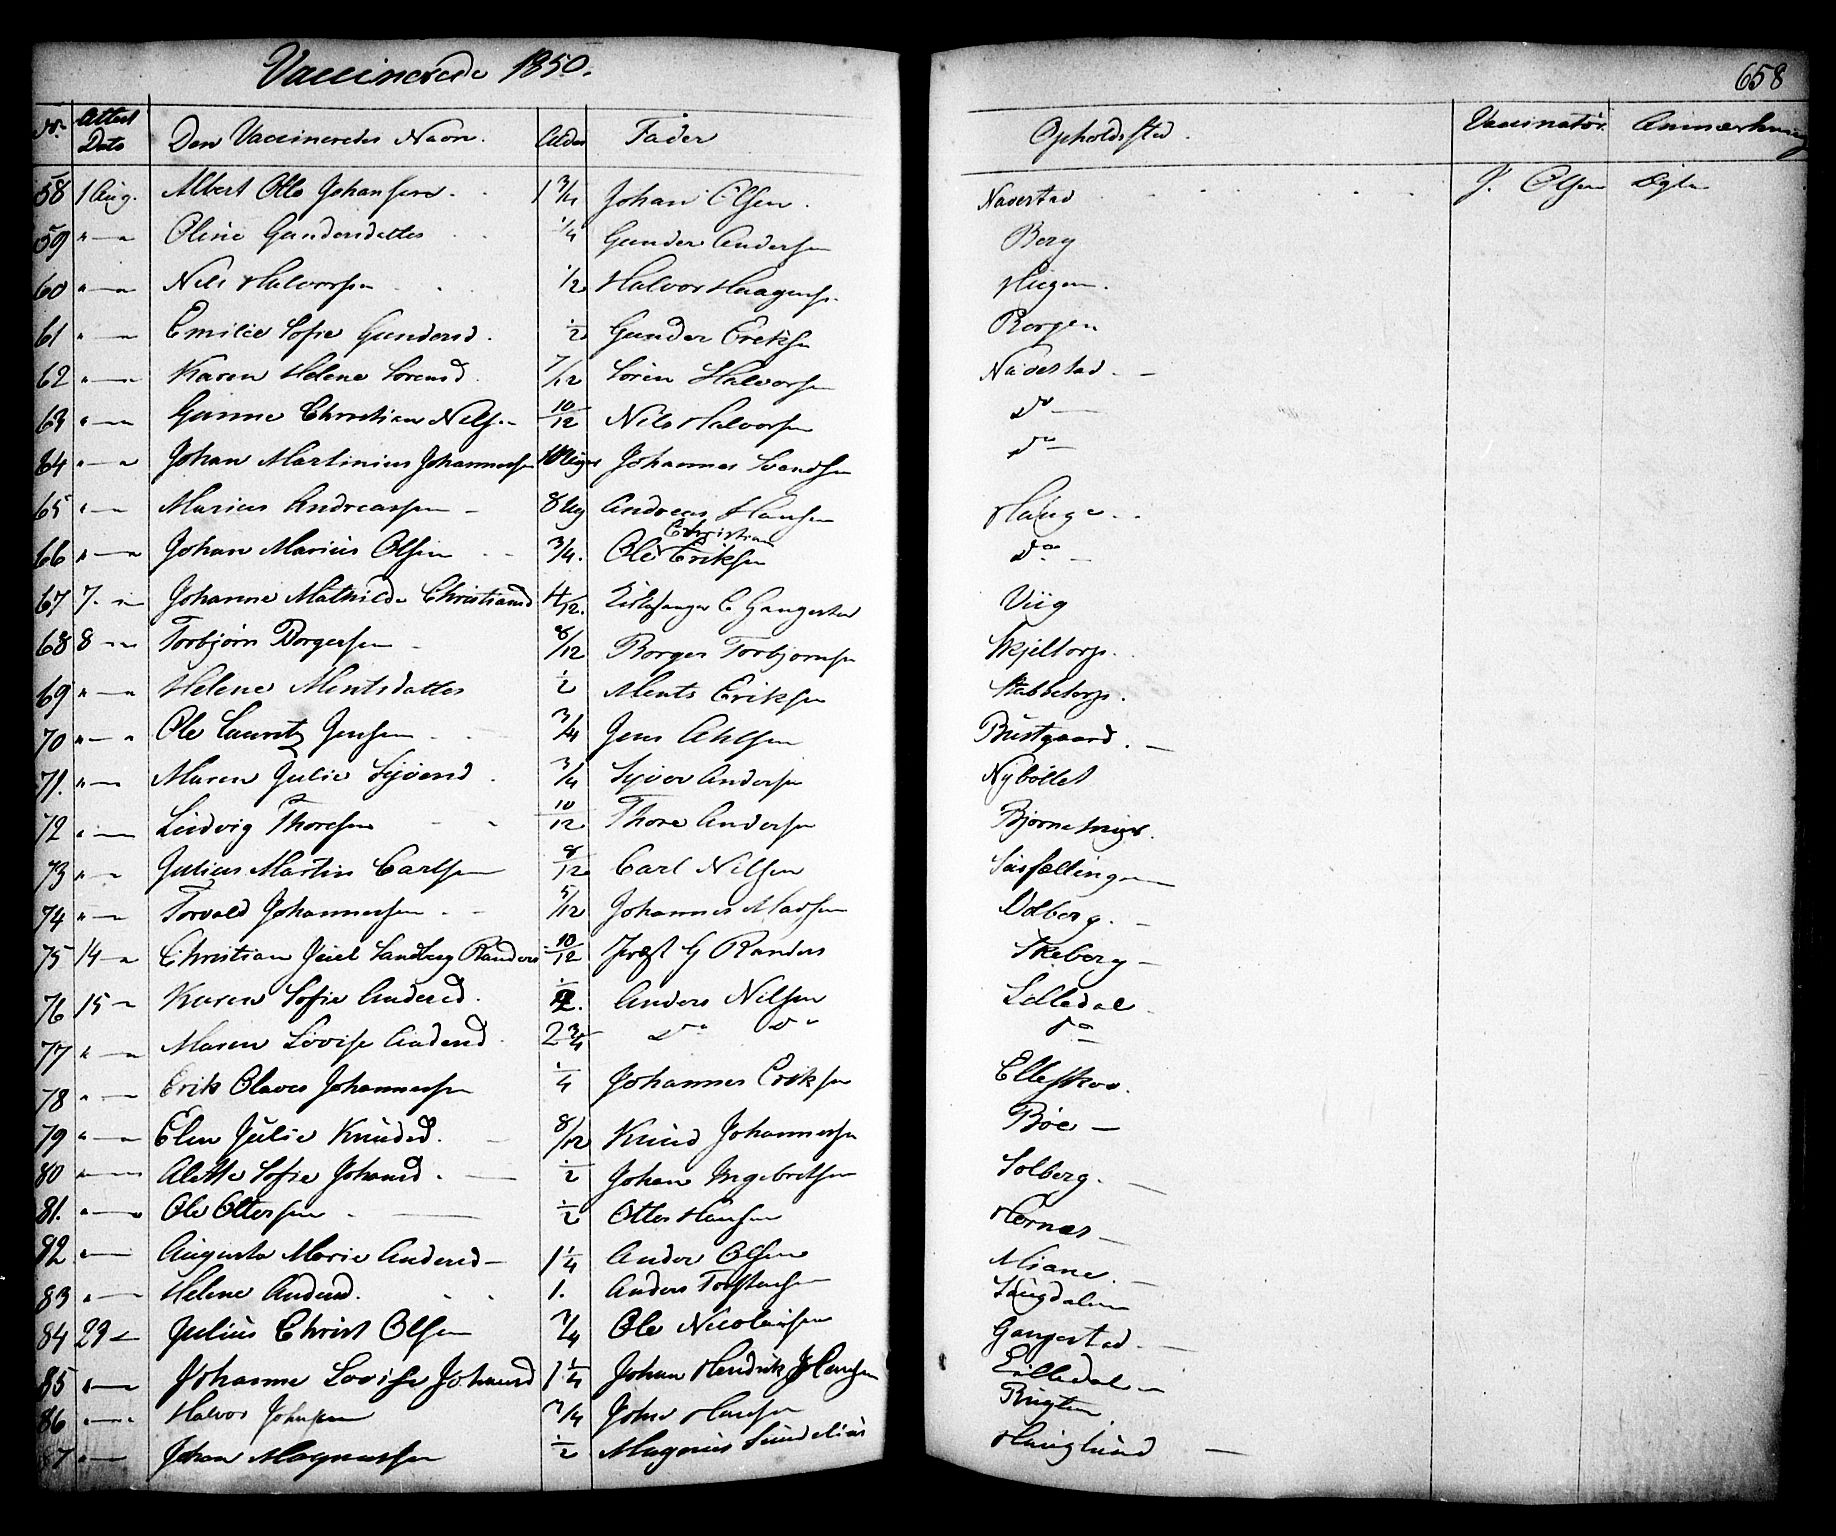 Vaccinerede 1850.
658
Nr. Attest Dato Den Vaccineredes Navn. Alder Fader Opholdssted. Vaccinatör Anmærkning
58 1 Aug. Albert Otto Johansen. 1 3/4 Johan Olsen. Navestad J. Olsen Ägte
59 "—" Oline Gundersdatter 1/4 Gunder Andersen Berg
60 "—" Nils Halvorsen 1/2 Halvor Haagens. Hugen.
61 "—" Emilie Sofie Gundersd. 1/2 Gunder Eriksen Borgen
62 "—" Karen Helene Sörensd. 7/12 Sören Halvorsen Navestad. —
63 "—" Christian Nilsen 10/12 Nils Halvorsen Do —
64 "—" Johan Martinius Johannessen 10 Uger Johannes Svendsen Do —
65 "—" Marius Andreassen — 8 Ug Andreas Hansen Hauge.
66 "—" Johan Marius Olsen 3/4. Ole Christian Eriksen Do —
67 7. — Johanne Mathilde Christiansd 4/12. Kirkesanger C Gangestad Viig
68 8 — Torbjörn Borgersen 8/12 Borger Torbjörnsen Skjeltorp.
69 "—" Helene Mentsdatter 1/2 Ments Eriksen Stabbetorp.
70 "—" Ole Lauritz Jensen 3/4 Jens Ahlsen Bustgaard. —
71. "—" Maren Julie Syversd. 3/4 Syver Andersen Nyböllet
72 "—" Ludvig Thoresen 10/12 Thore Andersen
73 "—" Julius Martin Carlsen 8/12 Carl Nilsen
74 "—" Torvald Johannessen 5/12 Johannes Madsen Valberg. —
75 14 — Christian Juel Sandberg Randers 10/12 Præst G Randers Skeberg —
76 15 — Karen Sofie Andersd. 1/2. Anders Nilsen Lilledal
77 "—" Maren Lovise Andersd 2 3/4 Do Do Do
78 "—" Erik Olaves Johannessen 1/4 Johannes Eriksen Elleskov.
79 "—" Elen Julie Knudsd. 8/12 Knud Johannessen Böe —
80 "—" Alette Sofie Johansd. 1/2 Johan Ingebretsen Solberg. —
81. "—" Ole Ottersen 1/2 Otter Hansen Hornæs —
82 "—" Augusta Marie Andersd — 1 1/4 Anders Olsen —
83 "—" Helene Andersd. 1. Anders Torstensen
84 29 — Julius Christ Olsen 3/4 Ole Nicolaisen Gangestad. —
85 "—" Johanne Lovise Johansd 1 1/4 Johan Hendrik Hansen Lilledal —
86 "—" Halvor Johnsen 3/4 John Hansen
87 "—" Johan Magnussen 1/2 Magnus Sundelius Hauglund —